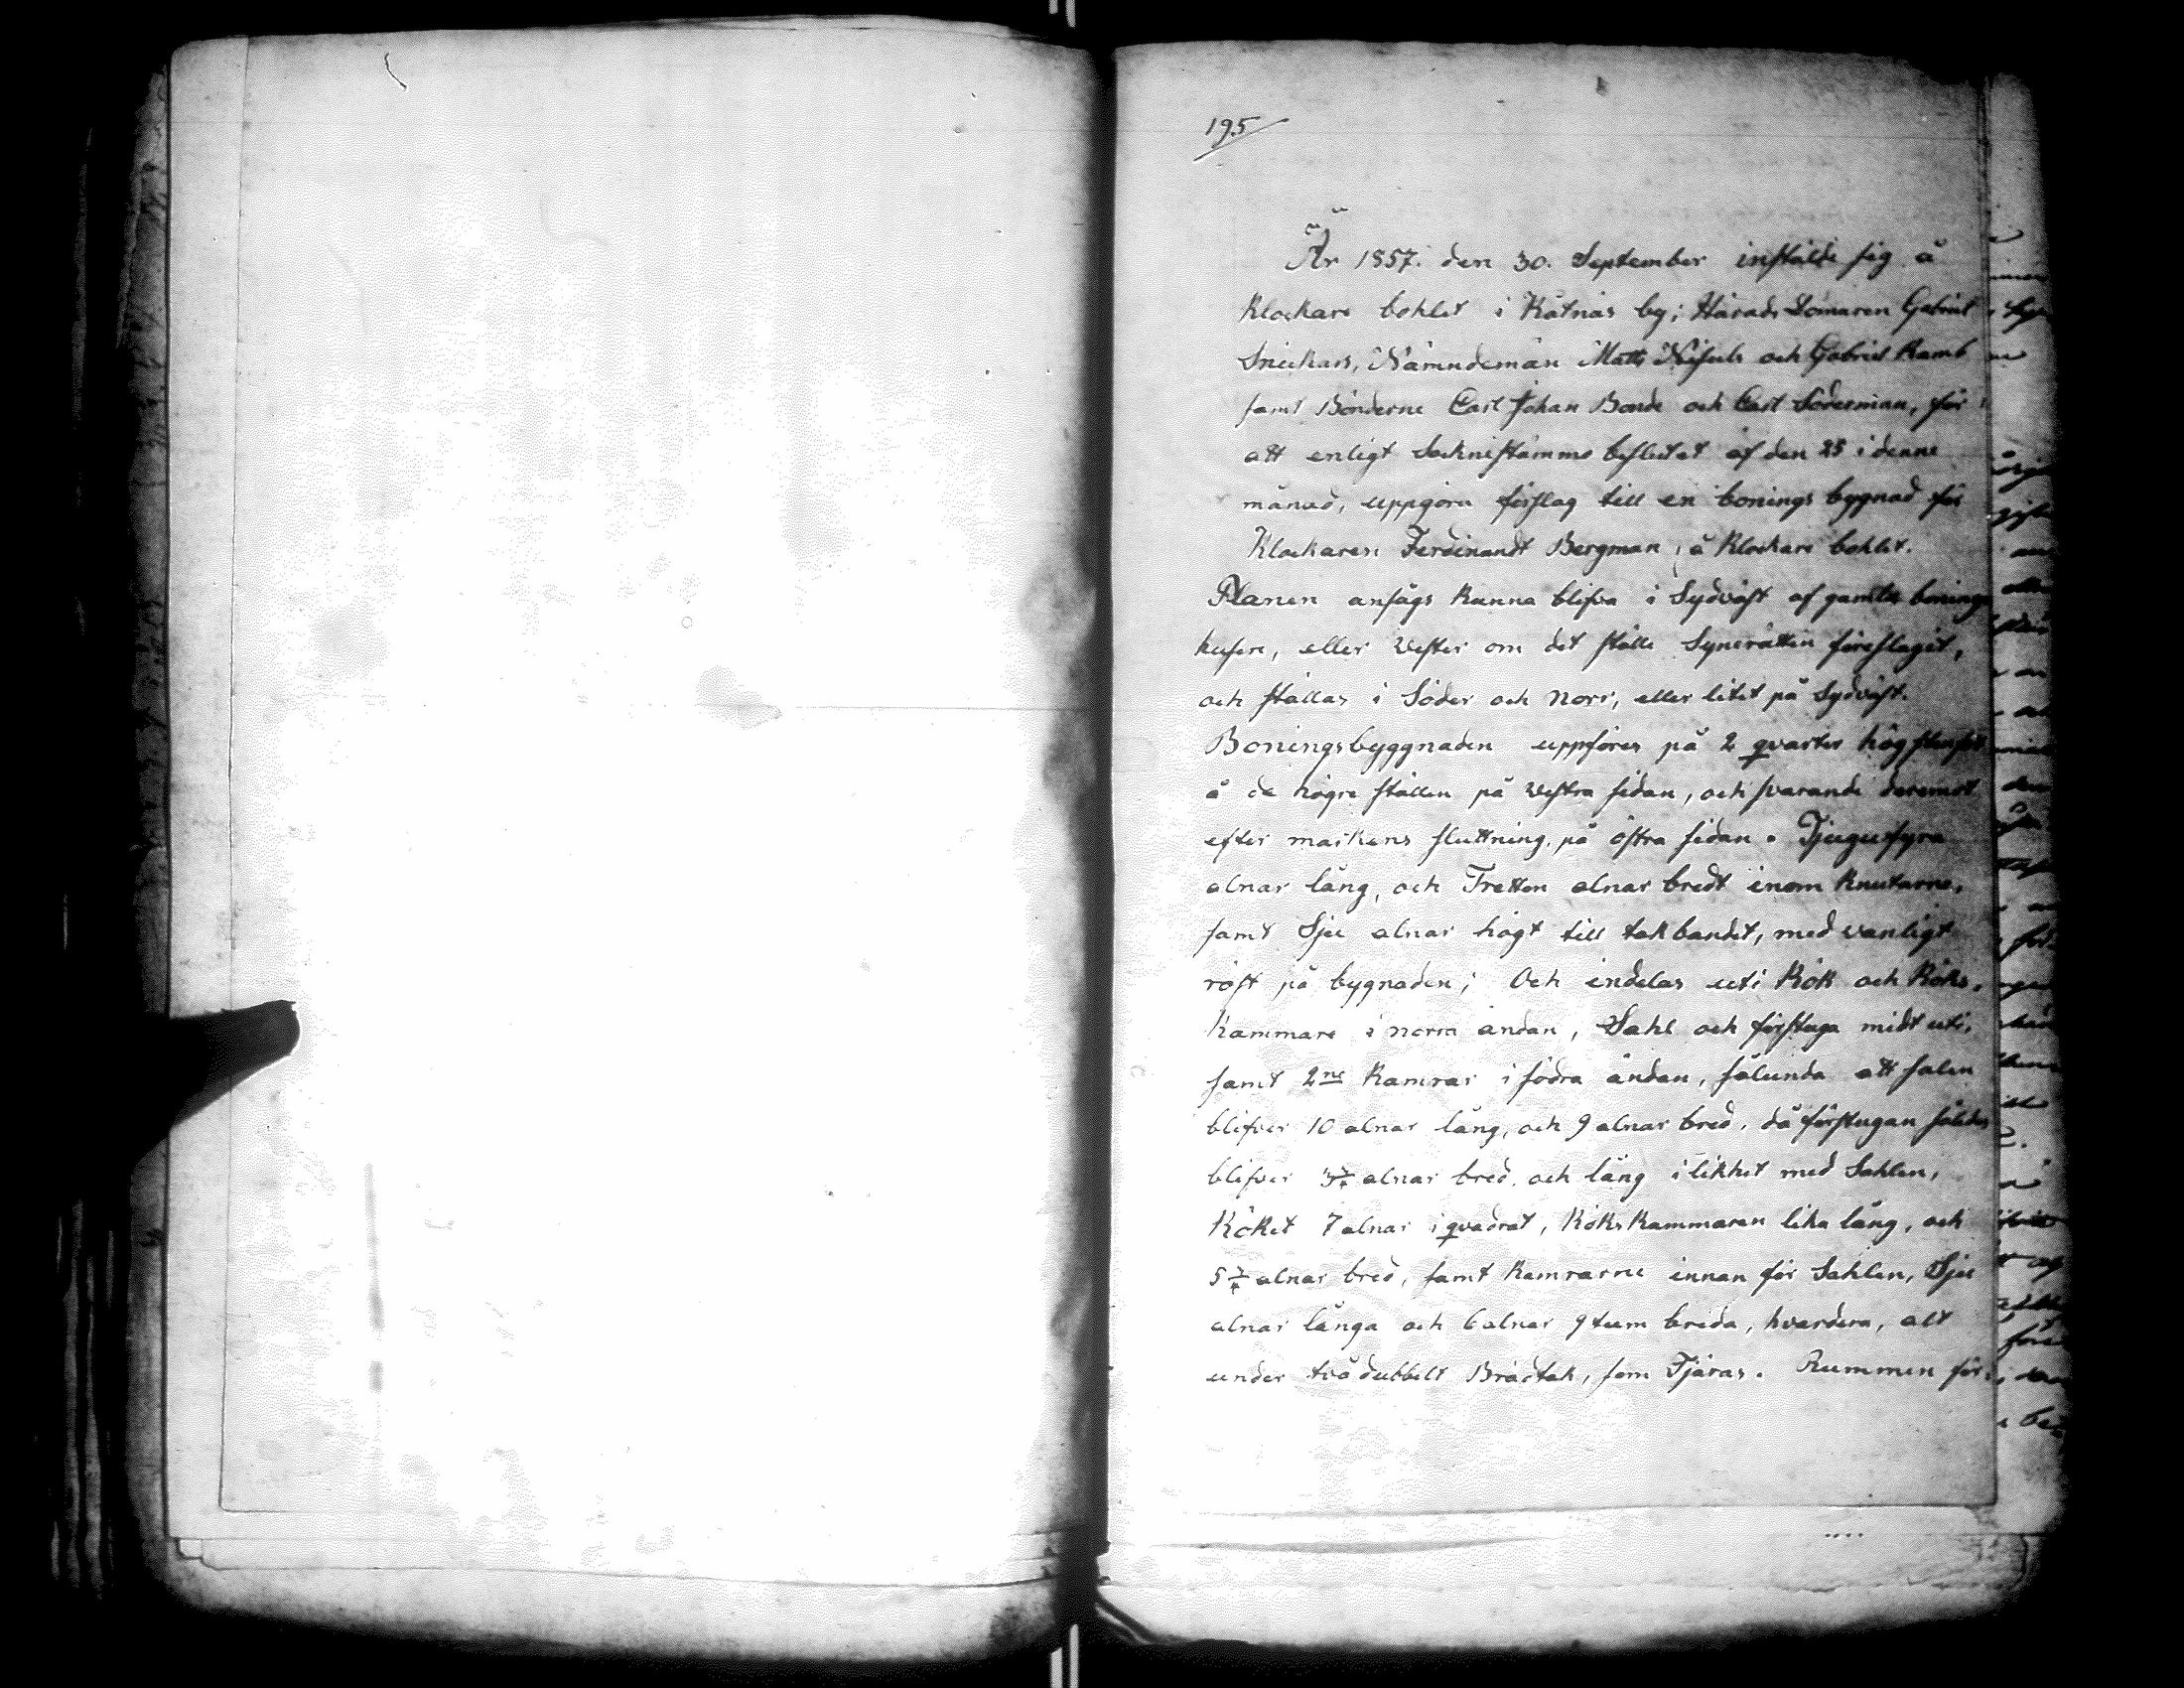 195
År 1857. den 30. September instälde sig å
Klockare bohlet i Kätnäs by; Härads Domaren Gabriel
Snickars, Nämndemän Matts och Gabriel Ramb
samt Bönderne Carl Johan Bonde och Carl Söderman, för
att enligt Sockne stämmo beslutet af den 25 i denne
månad, uppgöra förslag till en bonings bygnad för
Klockaren Ferdinandt Bergman, å Klockare bohlet.
Planen ansågs kunna blifva i Sydväst af gamla bonings
husen, eller Wester om det ställe Synerätten föreslagit,
och ställas i Söder och Norr, eller litet på Sydväst.
Boningsbyggnaden uppföres på 2 qvarter hög stenfot
å de högre ställen på Westra sidan, och svarande deremot
efter markens sluttning, på östra sidan. Tjugufyra
alnar lång, och Tretton alnar bredt inom knutarne,
samt Sju alnar högt till takbandet, med vanligt
röst på bygnaden; Och indelas uti Kök och Köks-
Kammare i norra ändan, Sahl och förstuga midt uti,
samt 2ne Kamrar i södra ändan, sålunda att salen
blifver 10 alnar lång, och 9 alnar bred, då förstugan således
blifver alnar bred, och lång i likhet med Sahlen,
Köket 7 alnar i qvadrat, Köks Kammaren lika lång, och
5 alnar bred, samt Kamrarne innan för Sahlen, Sju
alnar långa och 6 alnar 9 tum breda, hvardera, alt
under två dubbelt Brädtak, som Tjäras. Rummen för-